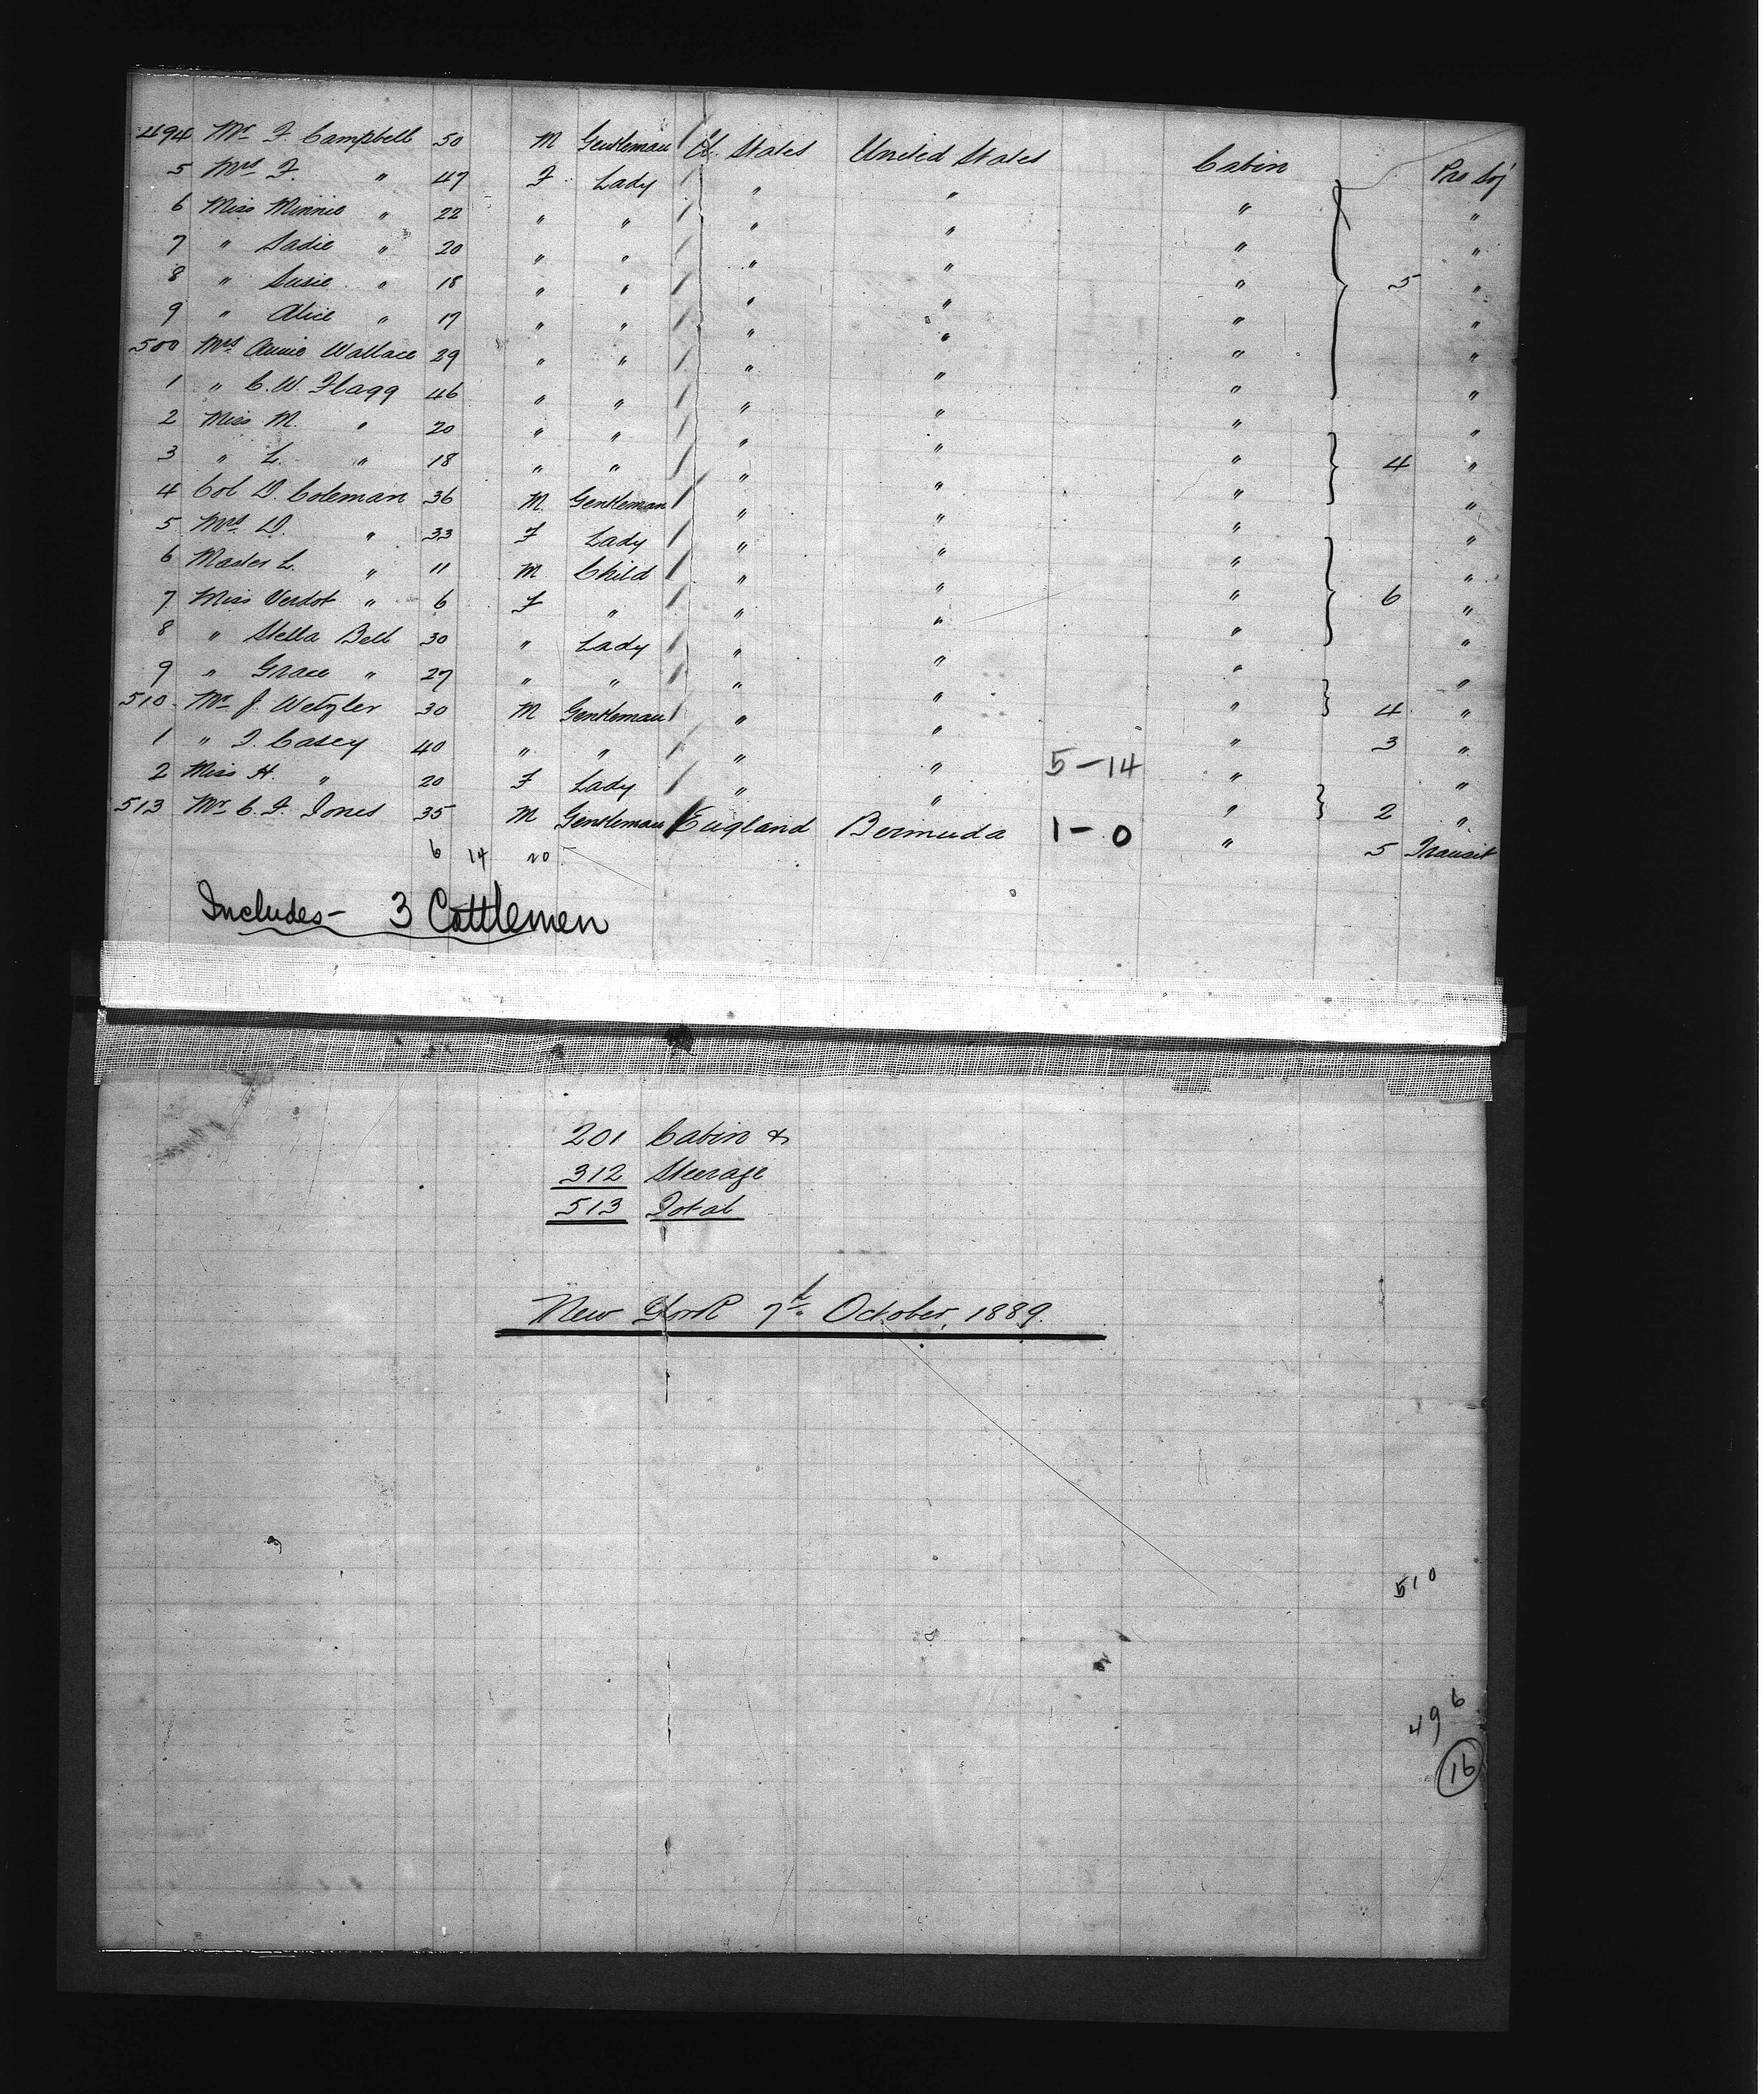 494 Mr F Campbell 50 M Gentleman U. States United States Cabin Pro Soj
5 Mrs F. " 47 F Lady " " " "
6 Miss Minnie " 22 " " " " " "
7 " Sadie " 20 " " " " " "
8 " Susie " 18 " " " " " 5 "
9 " Alice " 17 " " " " " "
500 Mrs Annie Wallace 29 " " " " " "
1 " C. W. Flagg 46 " " " " " "
2 Miss M. " 20 " " " " " "
3 " L. " 18 " " " " " 4 "
4 Col D. Coleman 36 M. Gentleman " " " "
5 Mrs D. " 33 F Lady " " " "
6 Master L. " 11 M Child " " " "
7 Miss Verdot " 6 F " " " " 6 "
8 " Stella Bell 30 " Lady " " " "
9 " Grace " 27 " " " " " "
510 Mr J. Wetzler 30 M Gentleman " " " 4 "
1 " F. Casey 40 " " " " " 3 "
2 Miss H. " 20 F Lady " " 5-14 " "
513 Mr C. F. Jones 35 M Gentleman England Bermuda 1-0 " 2 "
6 14 20 5 Transit
Includes- 3 Cattlemen
201 Cabin &
312 Steerage
513 Total
New York 7th October, 1889.
510
496
16